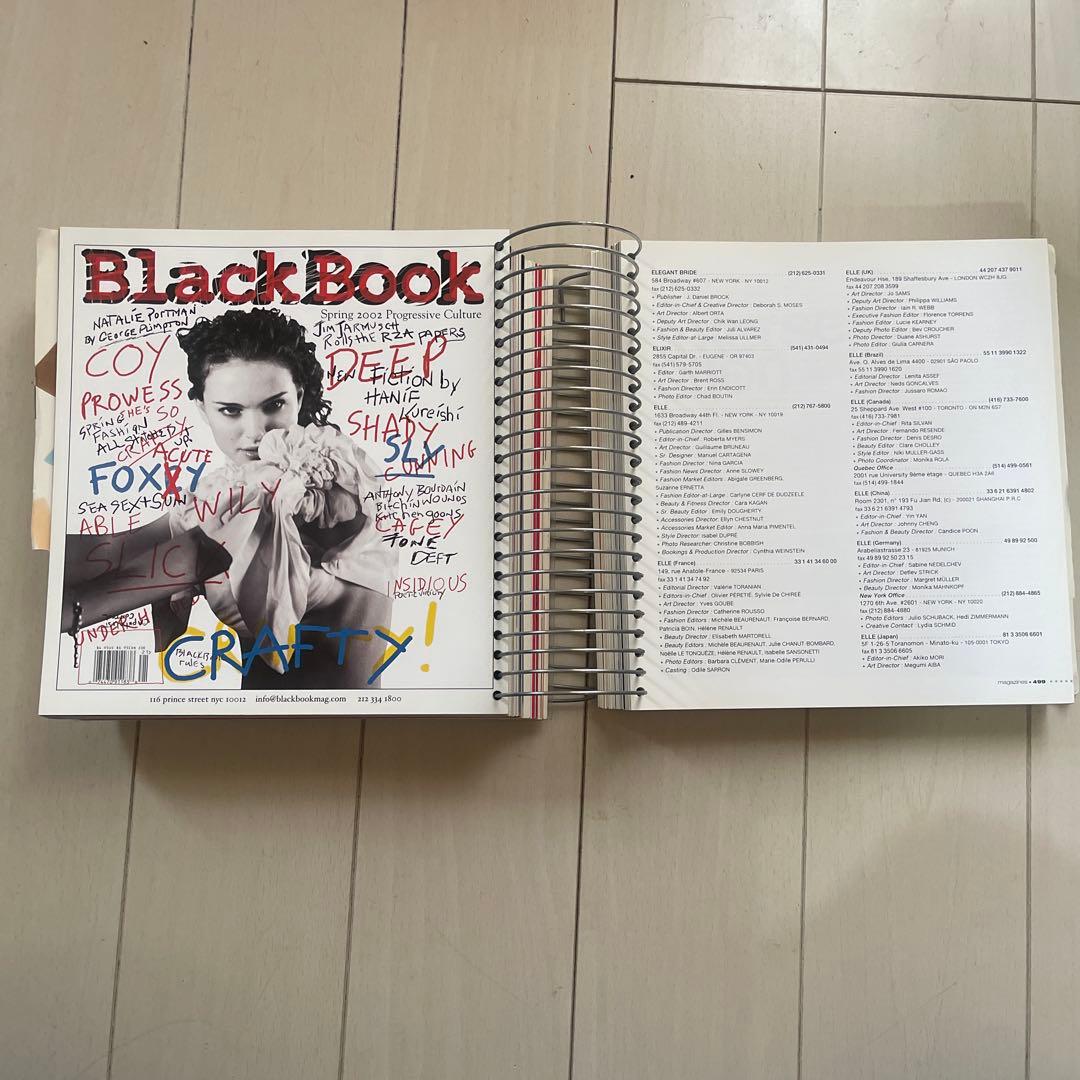 BlackBook
Spring 2002 Progressive Culture
NATALIE PORTMAN
BY GEORGE PLIMPTON
JIM JARMUSCH
Rolls the RZA PAPERS
COY
DEEP
NEW FICTION by
HANIF
Kureishi
PROWESS
SPRING
FASHION
SHE'S SO
ALL
CRAZY
UP
SHADY
SLY
CUNNING
ACUTE
FOXY
SEA SEX+SUN
WILY
ANTHONY BOURDAIN
Bitchin WOUNDS
Kitchen goons
ABLE
CAGEY
DEFT
SLICK
INSIDIOUS
UNDER
CRAFTY!
BLACKBOOK
rules
116 prince street nyc 10012 info@blackbookmag.com 212 334 1800
ELEGANT BRIDE (212) 625-0331
584 Broadway #607 - NEW YORK - NY 10012
fax (212) 625-0332
• Publisher : J. Daniel BROCK
• Editor-in-Chief & Creative Director : Deborah S. MOSES
• Art Director : Albert ORTA
• Deputy Art Director : Chik Wan LEONG
• Fashion & Beauty Editor : Juli ALVAREZ
• Style Editor-at-Large : Melissa ULLMER
ELIXIR (541) 431-0494
2855 Capital Dr. - EUGENE - OR 97403
fax (541) 579-5705
• Editor : Garth MARRIOTT
• Art Director : Brent ROSS
• Fashion Director : Erin ENDICOTT
• Photo Editor : Chad BOUTIN
ELLE (212) 767-5800
1633 Broadway 44th Fl. - NEW YORK - NY 10019
fax (212) 489-4211
• Publication Director : Gilles BENSIMON
• Editor-in-Chief : Roberta MYERS
• Art Director : Guillaume BRUNEAU
• Sr. Designer : Manuel CARTAGENA
• Fashion Director : Nina GARCIA
• Fashion News Director : Anne SLOWEY
• Fashion Market Editors : Abigale GREENBERG,
Suzanne ERNETTA
• Fashion Editor-at-Large : Carlyne CERF DE DUDZEELE
• Beauty & Fitness Director : Cara KAGAN
• Sr. Beauty Editor : Emily DOUGHERTY
• Accessories Director : Ellyn CHESTNUT
• Accessories Market Editor : Anna Maria PIMENTEL
• Style Director : Isabel DUPRÉ
• Photo Researcher : Christine BOBBISH
• Bookings & Production Director : Cynthia WEINSTEIN
ELLE (France) 33 1 41 34 60 00
149, rue Anatole-France - 92534 PARIS
fax 33 1 41 34 74 92
• Editorial Director : Valérie TORANIAN
• Editors-in-Chief : Olivier PERETIÉ, Sylvie DE CHIRÉE
• Art Director : Yves GOUBE
• Fashion Director : Catherine ROUSSO
• Fashion Editors : Michèle BEAURENAUT, Françoise BERNARD,
Patricia BOIN, Hélène RENAULT
• Beauty Director : Elisabeth MARTORELL
• Beauty Editors : Michèle BEAURENAUT, Julie CHANUT-BOMBARD,
Noëlle LE TONQUEZE, Hélène RENAULT, Isabelle SANSONETTI
• Photo Editors : Barbara CLÉMENT, Marie-Odile PERULLI
• Casting : Odile SARRON
ELLE (UK) 44 207 437 9011
Endeavour Hse, 189 Shaftesbury Ave - LONDON WC2H 8JG
fax 44 207 208 3599
• Art Director : Jo SAMS
• Deputy Art Director : Philippa WILLIAMS
• Fashion Director : Iain R. WEBB
• Executive Fashion Editor : Florence TORRENS
• Fashion Editor : Lucie KEARNEY
• Deputy Photo Editor : Bev CROUCHER
• Photo Director : Duane ASHURST
• Photo Editor : Giulia CARNERA
ELLE (Brazil) 55 11 3990 1322
Ave. O. Alves de Lima 4400 - 02901 SÃO PAULO
fax 55 11 3990 1620
• Editorial Director : Lenita ASSEF
• Art Director : Neds GONCALVES
• Fashion Director : Jussaro ROMAO
ELLE (Canada) (416) 733-7600
25 Sheppard Ave. West #100 - TORONTO - ON M2N 6S7
fax (416) 733-7981
• Editor-in-Chief : Rita SILVAN
• Art Director : Fernando RESENDE
• Fashion Director : Denis DESRO
• Beauty Editor : Clare CHOLLEY
• Style Editor : Niki MULLER-GASS
• Photo Coordinator : Monika ROLA
Quebec Office (514) 499-0561
2001 rue University 9ème étage - QUEBEC H3A 2A6
fax (514) 499-1844
ELLE (China) 33 6 21 6391 4802
Room 2301, n° 193 Fu Jian Rd, (c) - 200021 SHANGHAI P.R.C
fax 33 6 21 6391 4793
• Editor-in-Chief : Yin YAN
• Art Director : Johnny CHENG
• Fashion & Beauty Director : Candice POON
ELLE (Germany) 49 89 92 500
Arabellastrasse 23 - 81925 MUNICH
fax 49 89 92 50 23 15
• Editor-in-Chief : Sabine NEDELCHEV
• Art Director : Detlev STRICK
• Fashion Director : Margret MÜLLER
• Beauty Director : Monika MAHNKOPF
New York Office (212) 884-4865
1270 6th Ave. #2601 - NEW YORK - NY 10020
fax (212) 884-4880
• Photo Editors : Julio SCHUBACK, Hedi ZIMMERMANN
• Creative Contact : Lydia SCHMID
ELLE (Japan) 81 3 3506 6601
5F 1-26-5 Toranomon - Minato-ku - 105-0001 TOKYO
fax 81 3 3506 6605
• Editor-in-Chief : Akiko MORI
• Art Director : Megumi AIBA
magazines • 499